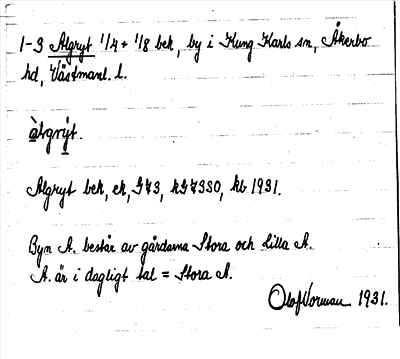 1-3 Algryt 1/4 + 1/8 bek, by i Kung Karls sn, Åkerbo
hd, Västmanl. l.
àtgrýt.
Algryt bek, ek, J73, kJ7330, kb 1931.
Byn A. består av gårdarna Stora och Lilla A.
A. är i dagligt tal = Stora A.
Olof Norman 1931.